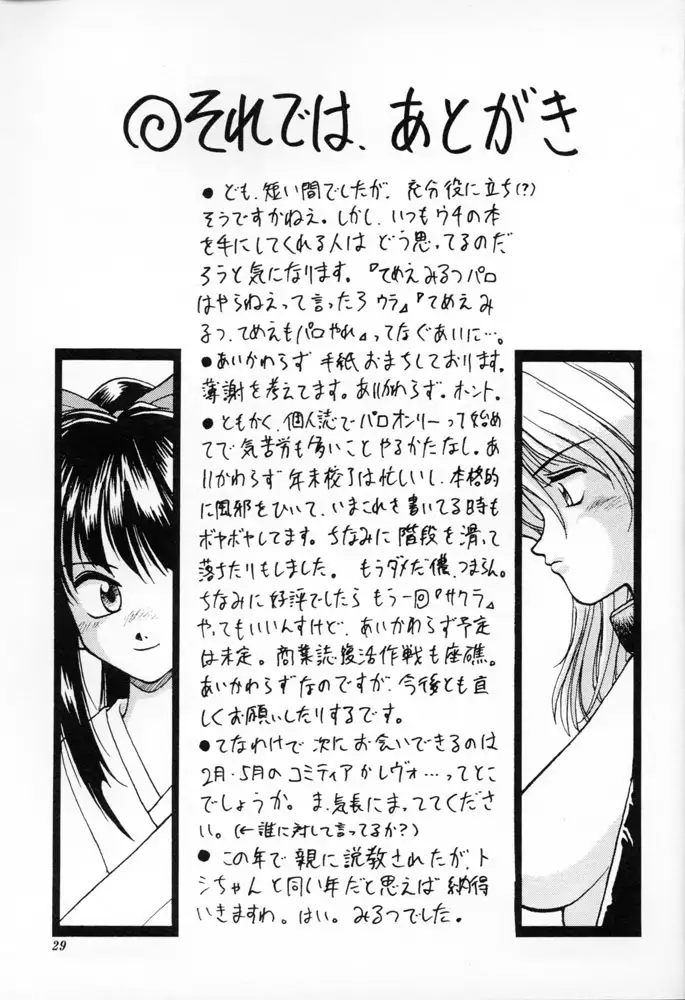 それでは、あとがき
●ども、短い間でしたが、充分役に立ち(?)
そうですかねえ。しかし、いつもウチの本
を手にしてくれる人は どう思ってるのだ
ろうと気になります。『てめえみるつパロ
はやらねえって言ったろ ウラ』『てめえ み
るつ、てめえもパロやれ』ってなぐあいに…。
●あいかわらず 手紙 おまちしております。
薄謝を考えてます。あいかわらず。ホント。
●ともかく、個人誌でパロオンリーって始め
てで気苦労も多いこと やるかたなし。あ
いかわらず 年末校了は忙しいし、本格的
に風邪をひいて、いまこれを書いてる時も
ボヤボヤしてます。ちなみに 階段を滑って
落ちたりもしました。 もうダメだ俺、つまらん。
ちなみに 好評でしたら もう一回『サクラ』
やってもいいんすけど、あいかわらず予定
は未定。商業誌復活作戦も座礁。
あいかわらずなのですが、今後とも宜
しくお願いしたりするです。
●てなわけで 次に お会いできるのは
2月・5月の コミティア か レヴォ…ってとこ
でしょうか。ま、気長にまっててくださ
い。(←誰に対して言ってるか?)
●この年で 親に説教されたが、ト
シちゃんと同い年だと思えば 納得
いきますわ。はい。みるつでした。
29